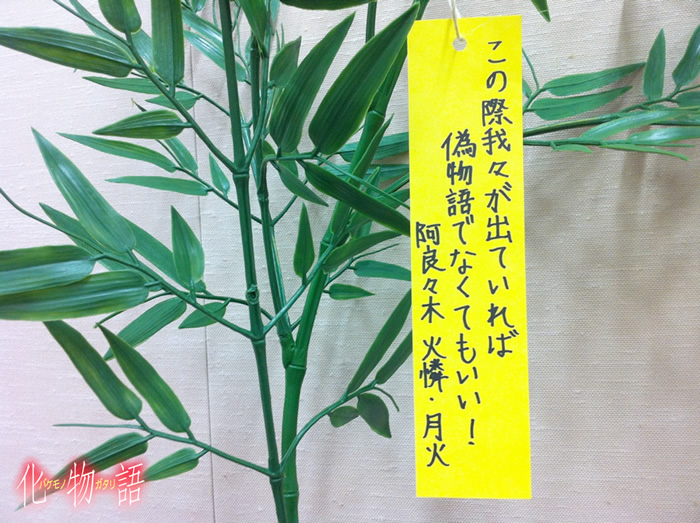 この際我々が出ていれば
偽物語でなくてもいい！
阿良々木 火憐・月火
化物語
バケモノガタリ